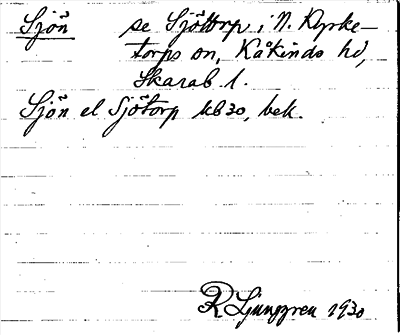 Sjön se Sjöttorp i N. Kyrke-
torps sn, Kåkinds hd,
Skarab. l.
Sjön el Sjötorp kb 30, bek.
R Ljunggren 1930